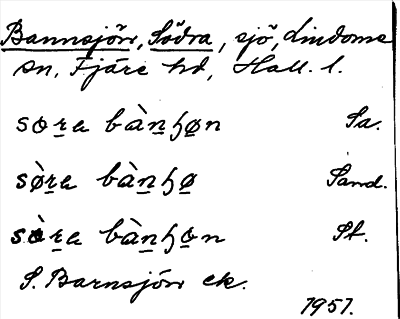 Barnsjön, Södra, sjö, Lindome
sn, Fjäre hd, Hall. l.
sora bànɧøn Sa.
sø̀ra bànɧø Sand.
sø̀ra bànɧon St.
S. Barnsjön ek.
1951.